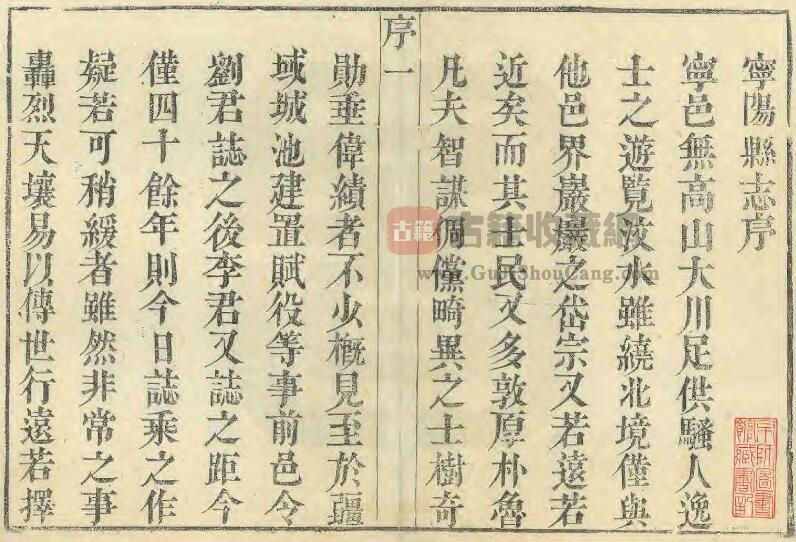 寧陽縣志序
寧邑無高山大川足供騷人逸
士之遊覽汶水雖繞北境僅與
他邑界巖巖之岱宗又若遠若
近矣而其士民又多敦厚朴魯
凡夫智謀倜儻畸異之士樹奇
序一
勛垂偉績者不少槪見至於疆
域城池建置賦役等事前邑令
劉君誌之後李君又誌之距今
僅四十餘年則今日誌乘之作
疑若可稍緩者雖然非常之事
轟烈天壤易以傳世行遠若擇
古籍 古籍收藏網
www.GujiShouCang.com